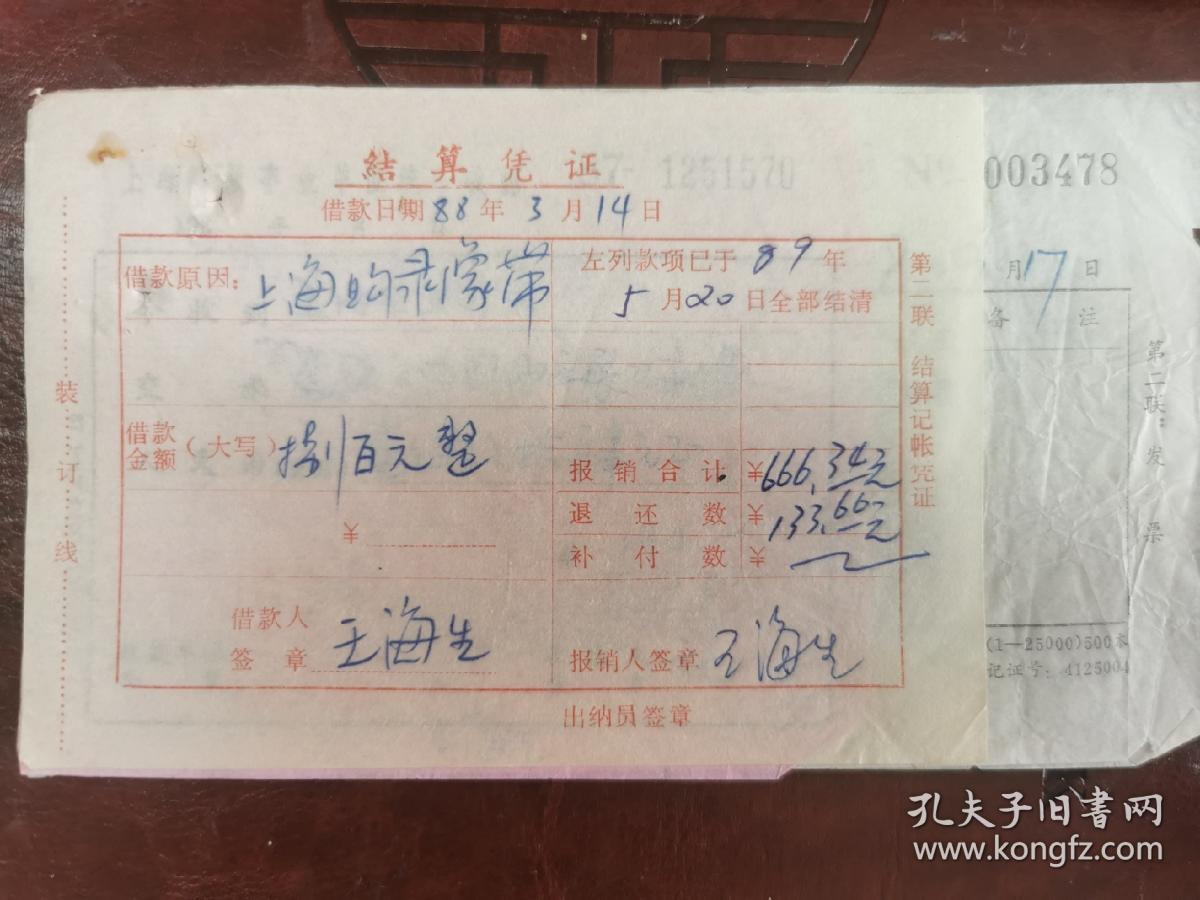 结算凭证
1251570
003478
借款日期 88 年 3 月 14 日
借款原因：上海购录像带
左列款项已于 89 年
5 月 20 日全部结清
借款金额（大写）捌百元整
￥
报销合计 ￥666.34元
退还数 ￥133.66元
补付数 ￥
借款人签章 王海生
报销人签章 王海生
出纳员签章
第二联 结算记帐凭证
装订线
月 17 日
备注
第二联：发票
(1—25000)500本
记证号：4125004
孔夫子旧书网
www.kongfz.com